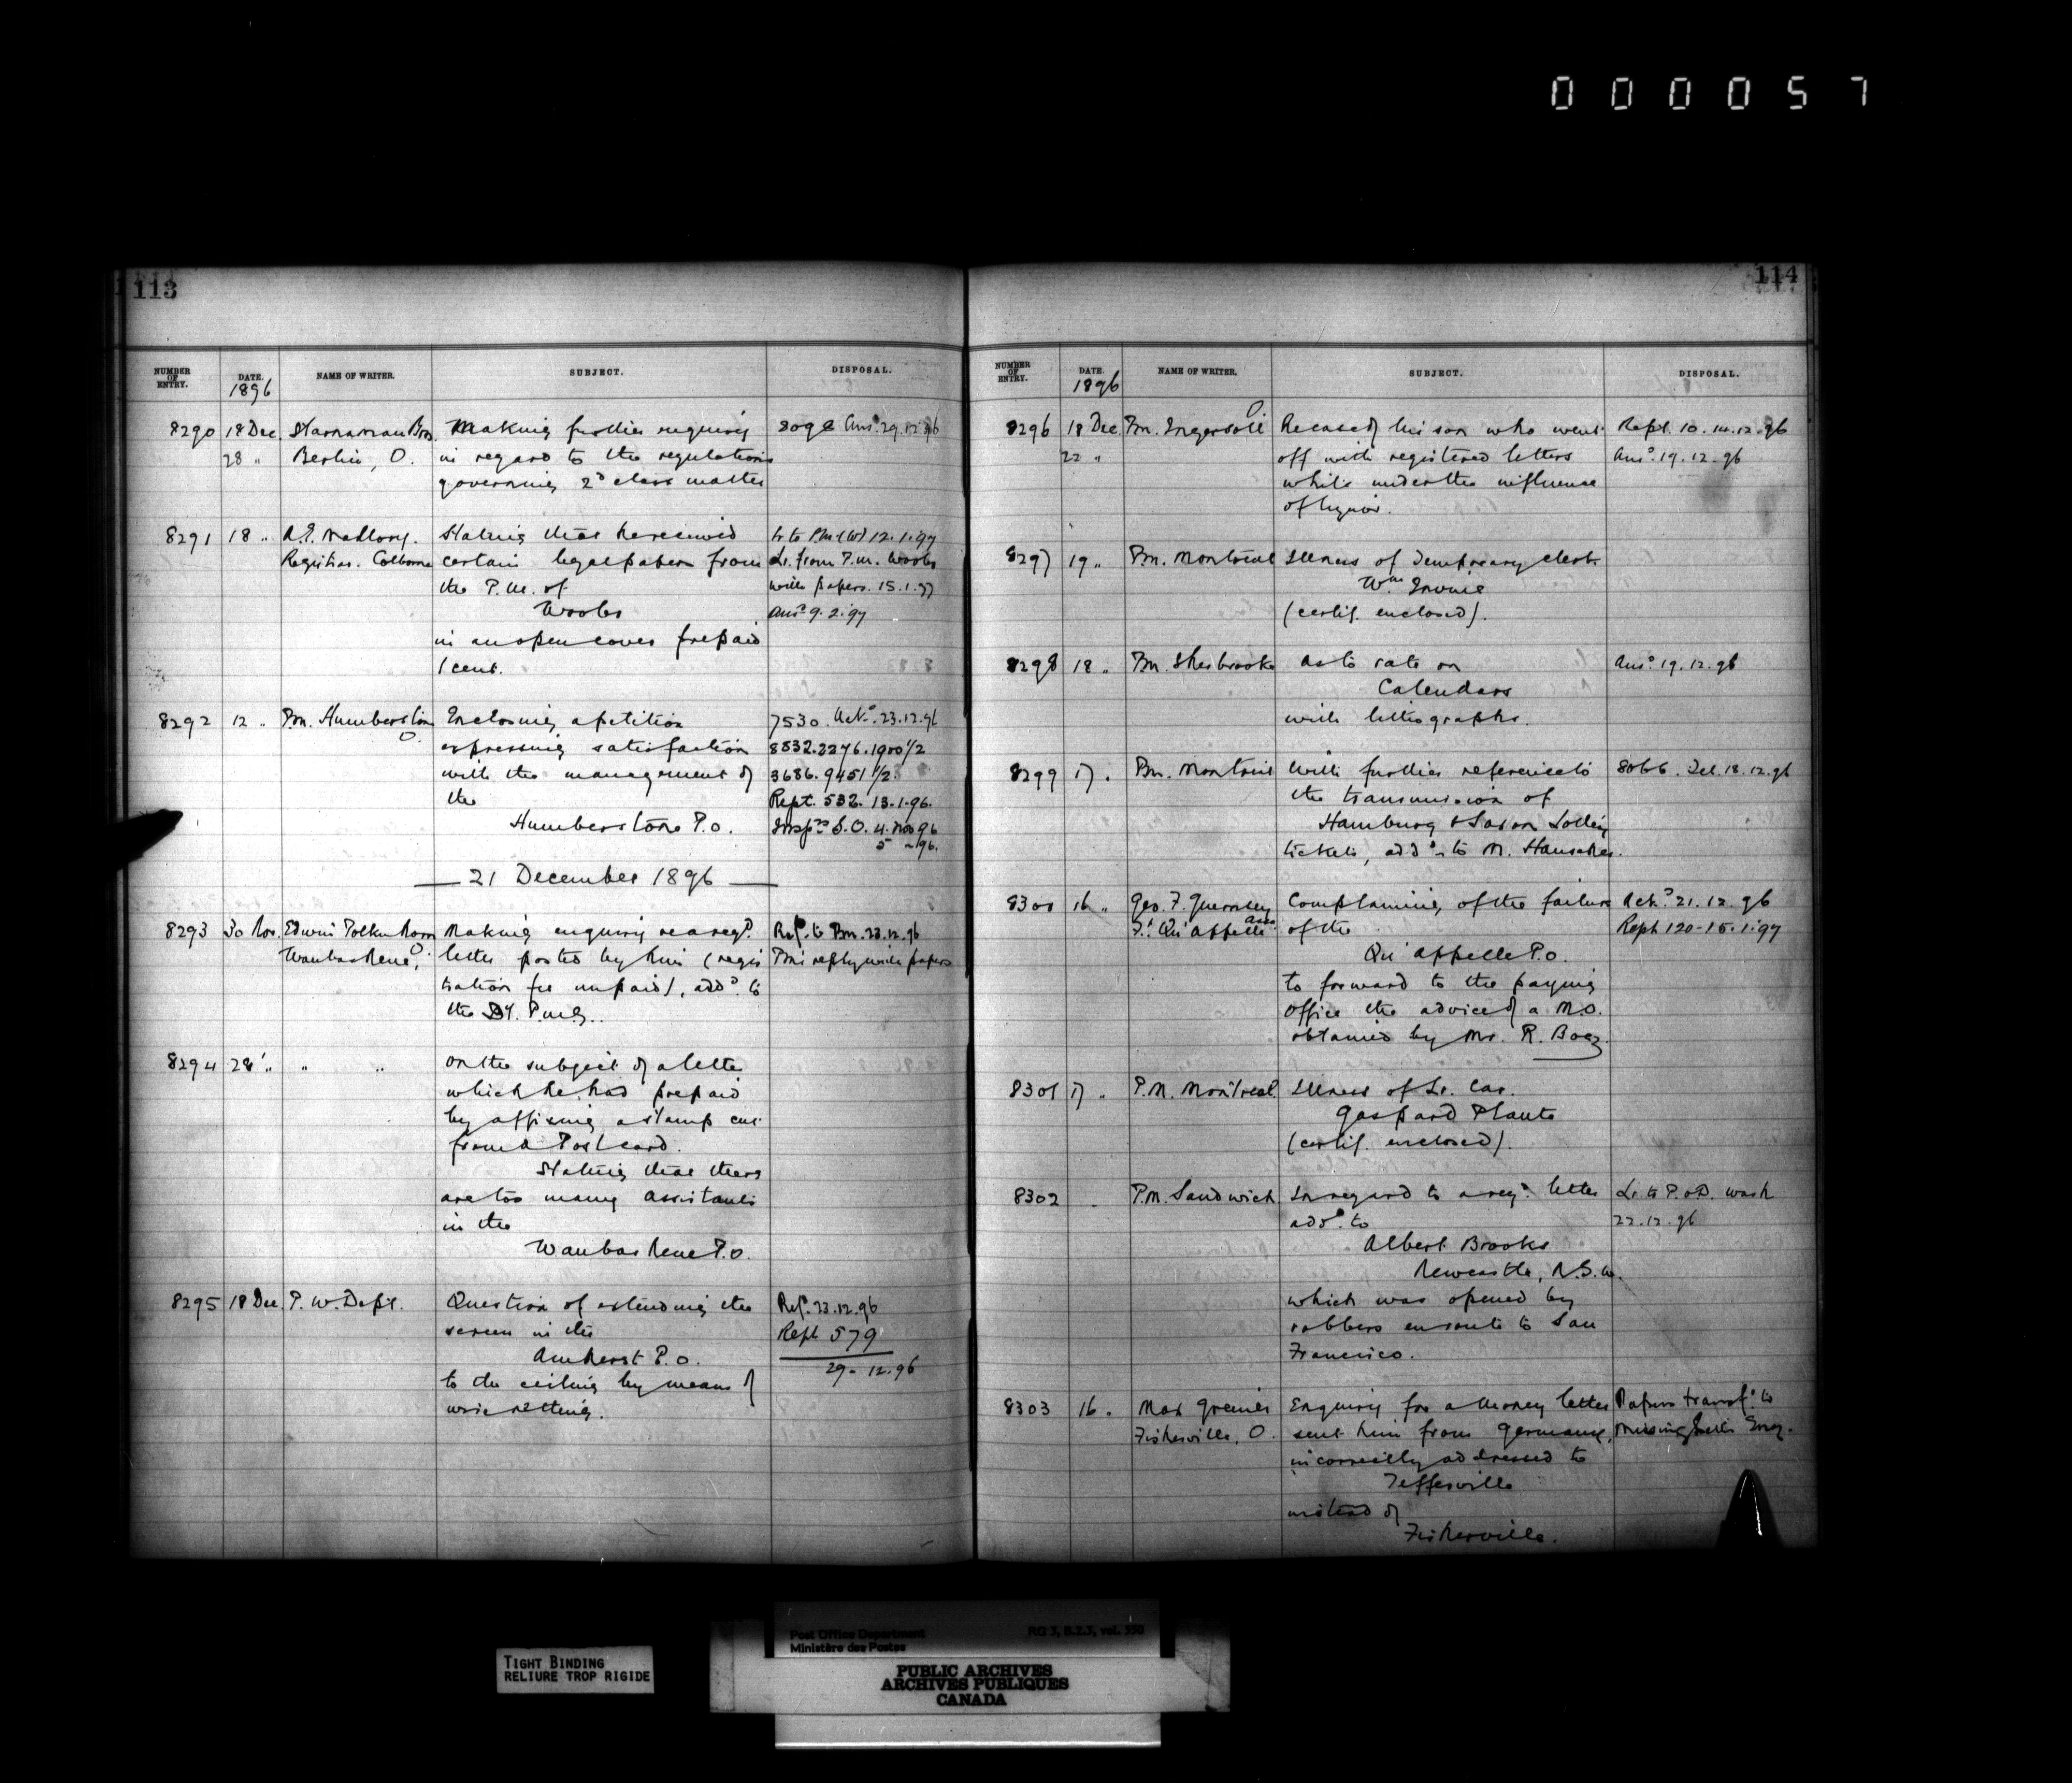 0 0 0 0 5 7
113
NUMBER OF ENTRY. DATE. NAME OF WRITER. SUBJECT. DISPOSAL.
1896
8290 18 Dec Starnaman Bros. Making further enquiry 8098 Ansd. 29.12.96
28 " Berlin, O. in regard to the regulations
governing 2d class matter
8291 18 " A.E. Mallory. Stating that he received Lr to P.M. (W) 12.1.97
Registrar. Colborne certain legal papers from Lr. from P.M. Wooler
the P.M. of with papers. 15.1.97
Wooler Ansd 9.2.97
in an open cover prepaid
1 cent.
8292 12 " Pm. Humberstone Enclosing a petition 7530. Ackd. 23.12.96
O. expressing satisfaction 8832.2276.1900 1/2
with the management of 3686.9451 1/2.
the Rept. 532. 13.1.96.
Humberstone P.O. Inspr S.O. 4. Nov 96
5 " 96.
— 21 December 1896 —
8293 30 Nov. Edwin Making enquiry re a regd. Refd. to Pm. 23.12.96
Waubaushene, O letter posted by him (regis Pm's reply with papers
tration fee unpaid), addd. to
the Dy. P.M.G..
8294 28 " " " On the subject of a letter
which he had prepaid
by affixing a stamp cut
from a Post card.
Stating that there
are too many assistants
in the
Waubaushene P.O.
8295 18 Dec. P.W. Dept. Question of extending the Refd. 23.12.96
screen in the Rept 579
Amherst P.O. 29-12.96
to the ceiling by means of
wire netting.
114
NUMBER OF ENTRY. DATE. NAME OF WRITER. SUBJECT. DISPOSAL.
1896
8296 18 Dec Pm. Ingersoll O Re case of his son who went Rept. 10.14.12.96
22 " off with registered letters Ansd. 19.12.96
while under the influence
of liquor.
8297 19 " Pm. Montreal Illness of Temporary clerk
Wm Irvine
(certif. enclosed).
8298 18 " Pm. Sherbrooke As to rate on Ansd. 19.12.96
Calendars
with lithographs.
8299 17 . Pm. Montreal With further reference to 8066. Tel. 18.12.96
the transmission of
Hamburg & Saxon Lottery
tickets, addd to M. Hanscher.
8300 16 " Geo. F. Guernsey Complaining of the failure Ackd. 21.12.96
Ft. Qu'Appelle Assa of the Rept 120-15.1.97
Qu'Appelle P.O.
to forward to the paying
office the advice of a M.O.
obtained by Mr. R. Boaz.
8301 17 " P.M. Montreal. Illness of Lr. Car.
Gaspard Plante
(certif. enclosed).
8302 " P.M. Sandwich In regard to a regd. letter Lr. to P.O.D. Wash
addd. to 22.12.96
Albert Brooks
Newcastle, N.S.W.
which was opened by
robbers en route to San
Francisco.
8303 16 . Max Grenier Enquiry for a money letter Papers transfd. to
Fisherville, O. sent him from Germany, Missing Letter Enqy.
incorrectly addressed to
Jeffersville
instead of
Fisherville.
TIGHT BINDING
RELIURE TROP RIGIDE
Post Office Department RG 3, B.2.3, vol. 550
Ministère des Postes
PUBLIC ARCHIVES
ARCHIVES PUBLIQUES
CANADA